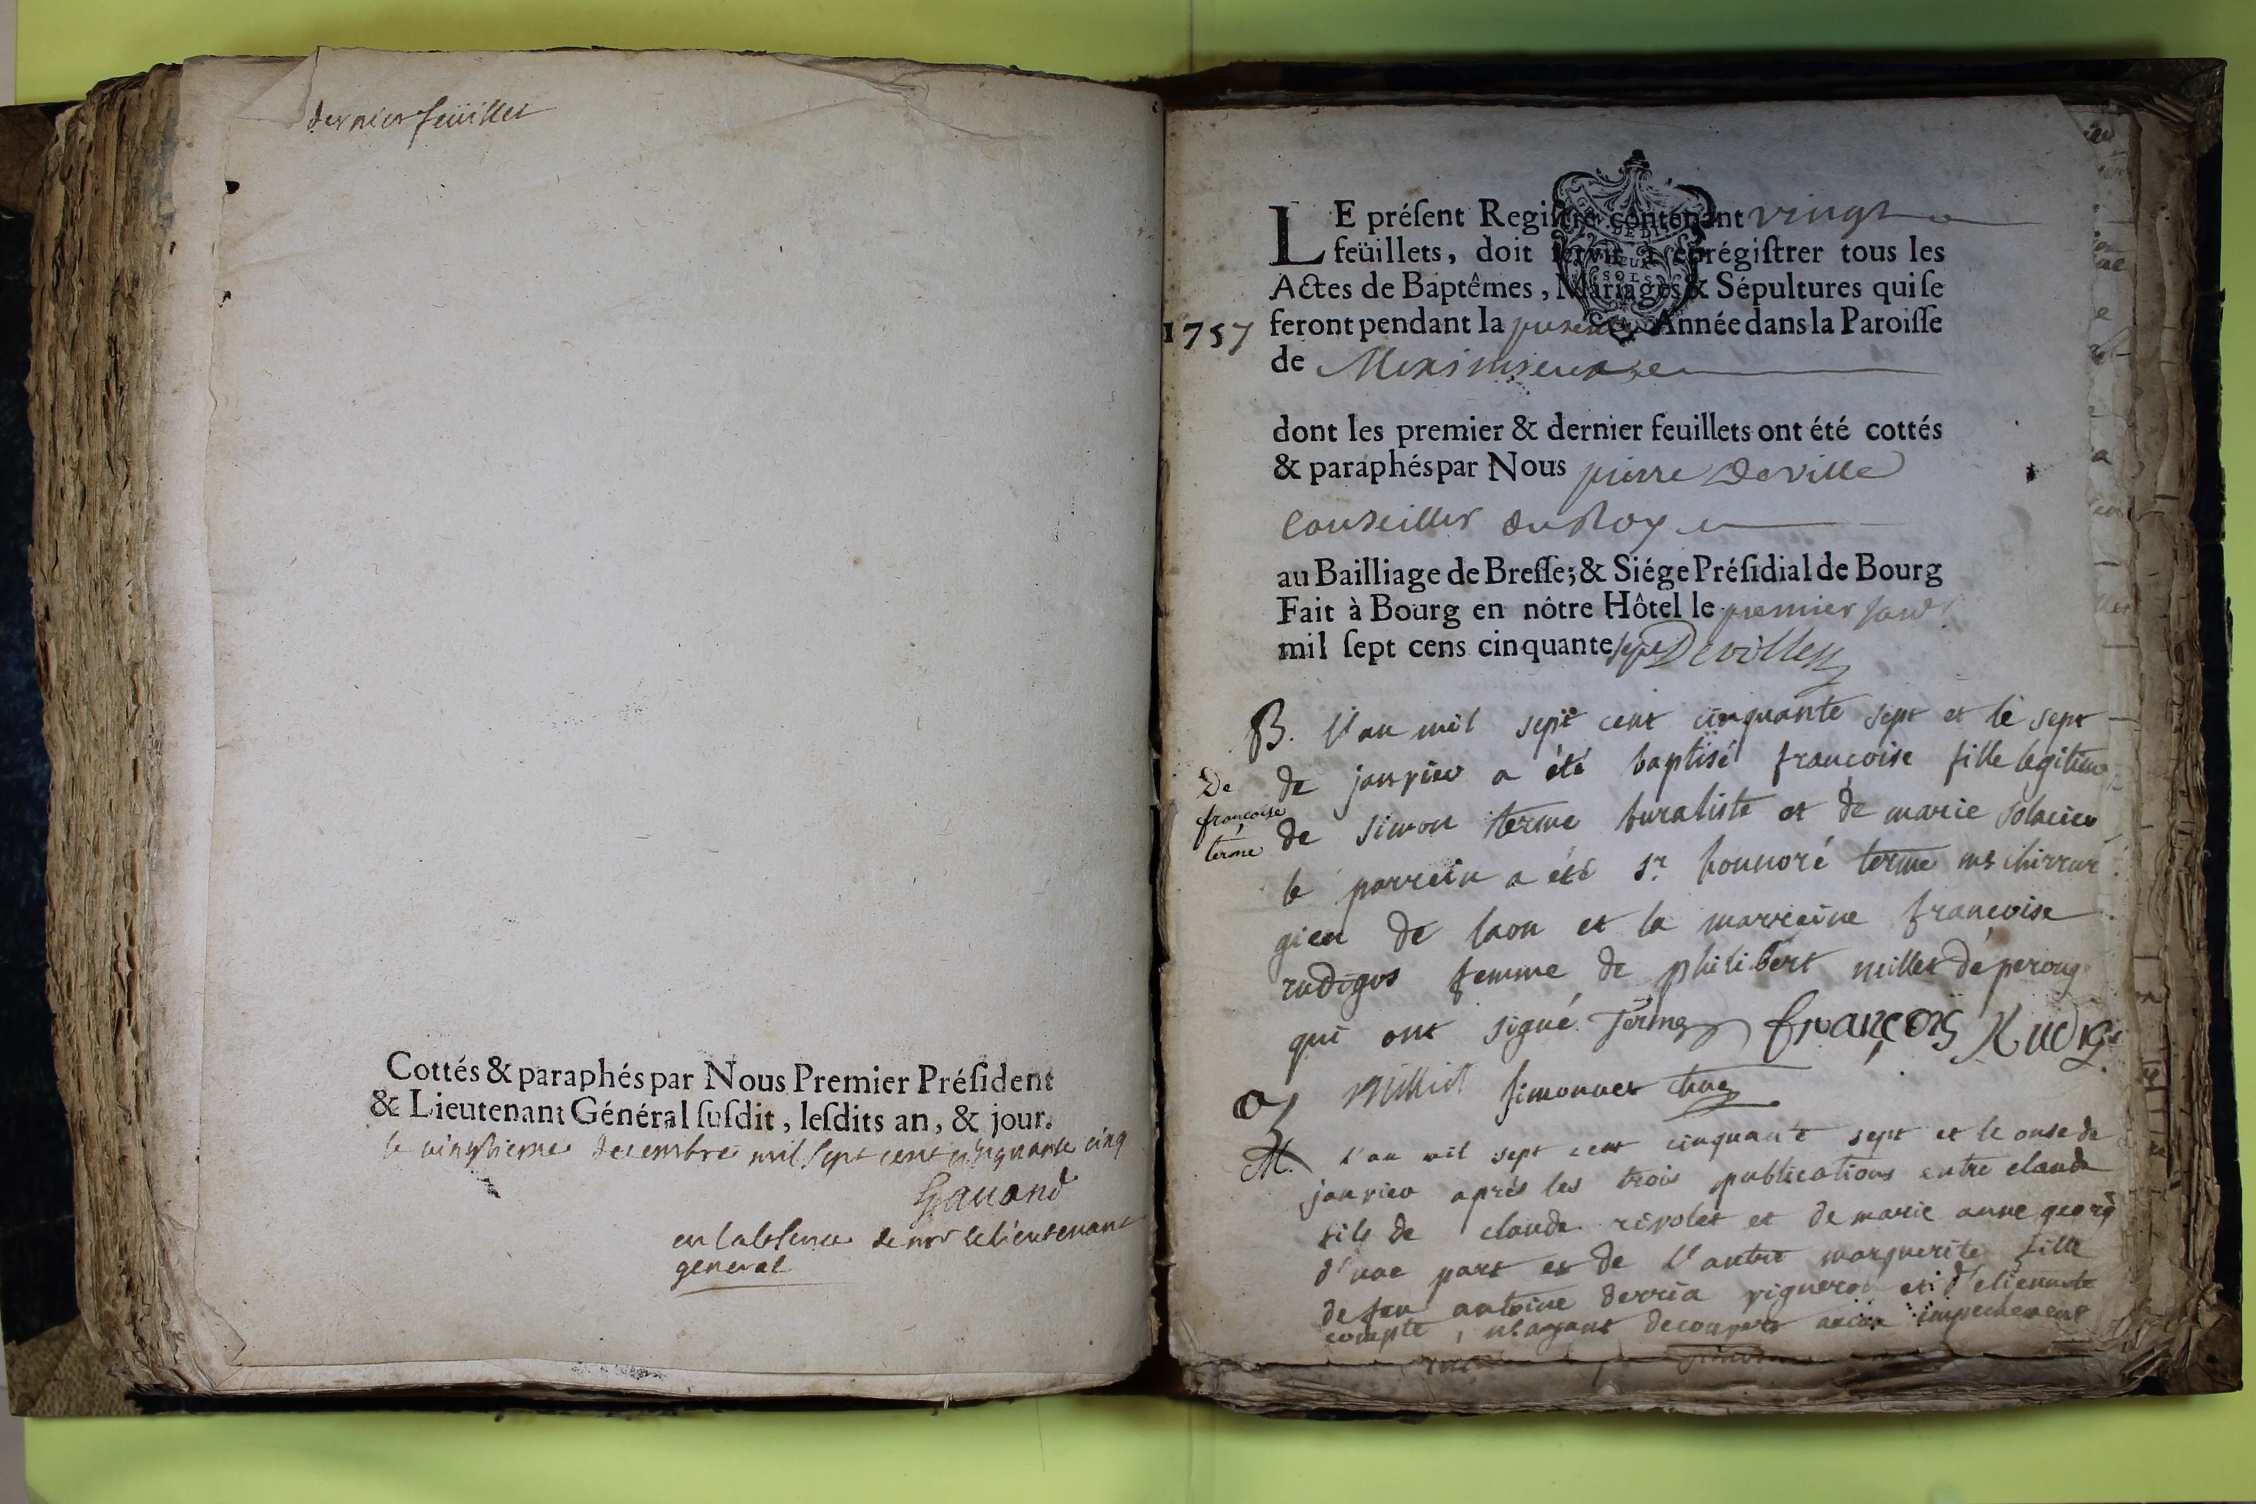 dernier feüillet
Cottés & paraphés par Nous Premier Préſident
& Lieutenant Général ſuſdit, leſdits an, & jour.
le vingtieme decembre mil sept cent cinquante cinq
Gauand
en labsence de mr le lieutenant
general
LE préſent Regiſtre contenant vingt
feüillets, doit ſervir à enrégiſtrer tous les
Actes de Baptêmes, Mariages & Sépultures qui ſe
1757 feront pendant la presente Année dans la Paroiſſe
de Meximieux
dont les premier & dernier feuillets ont été cottés
& paraphés par Nous pierre Deville
Conseiller du Roy
au Bailliage de Breſſe; & Siége Préſidial de Bourg
Fait à Bourg en nôtre Hôtel le premier janv.
mil ſept cens cinquante sept Deville
B. l'an mil sept cent cinquante sept et le sept
de janvier a été baptisé francoise fille legitime
De
francoise
terme
de simon terme buraliste et de marie
le parrein a été sr. honnoré terme me chirrur
gien de laon et la marreine francoise
rudigos femme de philibert millet de peroug
qui ont signé Terme françois Rudig
Milliet Simonnet
M. l'an mil sept cent cinquante sept et le onse de
janvier aprés les trois publications entre claude
fils de claude rivolet et de marie anne georg
d'une part et de l'autre marguerite fille
de feu antoine derria vigneron et d'etiennete
compte, n'ayant decouvert aucun impechement